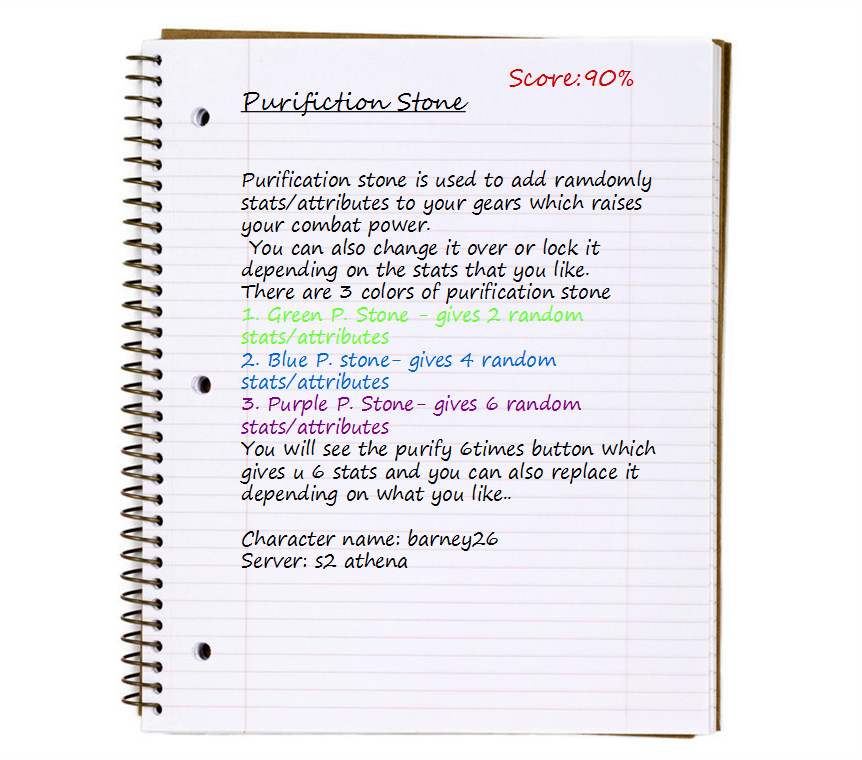 Score:90%
Purifiction Stone
Purification stone is used to add ramdomly
stats/attributes to your gears which raises
your combat power.
You can also change it over or lock it
depending on the stats that you like.
There are 3 colors of purification stone
1. Green P. Stone - gives 2 random
stats/attributes
2. Blue P. stone- gives 4 random
stats/attributes
3. Purple P. Stone- gives 6 random
stats/attributes
You will see the purify 6times button which
gives u 6 stats and you can also replace it
depending on what you like..
Character name: barney26
Server: s2 athena